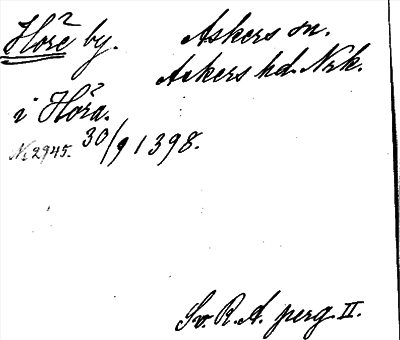 Hore² by. Askers sn.
Askers hd. Nrk.
i Hóra.
№ 2945. 30/9 1398.
Sv. R. A. perg. II.